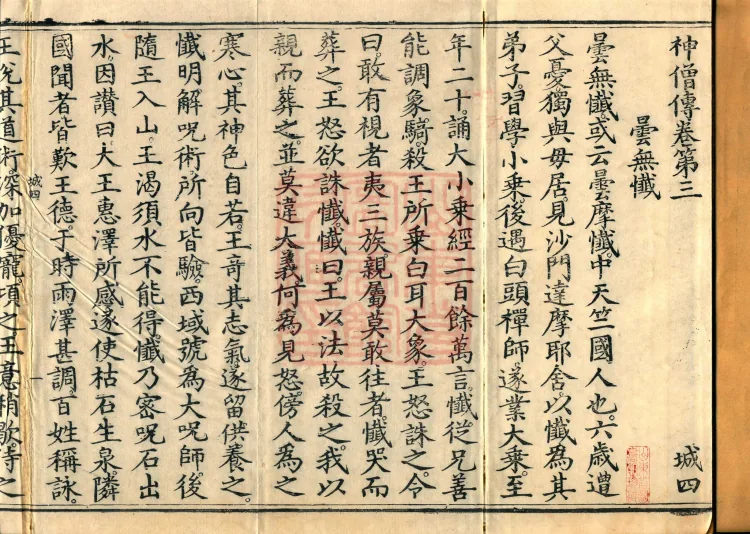 神僧傳卷第三 城四
曇無懺
曇無懺或云曇摩懺中天竺國人也六歲遭
父憂獨與母居見沙門達摩耶舍以懺為其
弟子習學小乘後遇白頭禪師遂業大乘至
年二十誦大小乘經二百餘萬言懺從兄善
能調象騎殺王所乘白耳大象王怒誅之令
曰敢有視者夷三族親屬莫敢往者懺哭而
葬之王怒欲誅懺懺曰王以法故殺之我以
親而葬之並莫違大義何為見怒傍人為之
寒心其神色自若王奇其志氣遂留供養之
懺明解呪術所向皆驗西域號為大呪師後
隨王入山王渴須水不能得懺乃密呪石出
水因讃曰大王惠澤所感遂使枯石生泉隣
國聞者皆歎王德于時雨澤甚調百姓稱詠
城四 一
王悅其道術深加優寵頃之王意稍歇待之